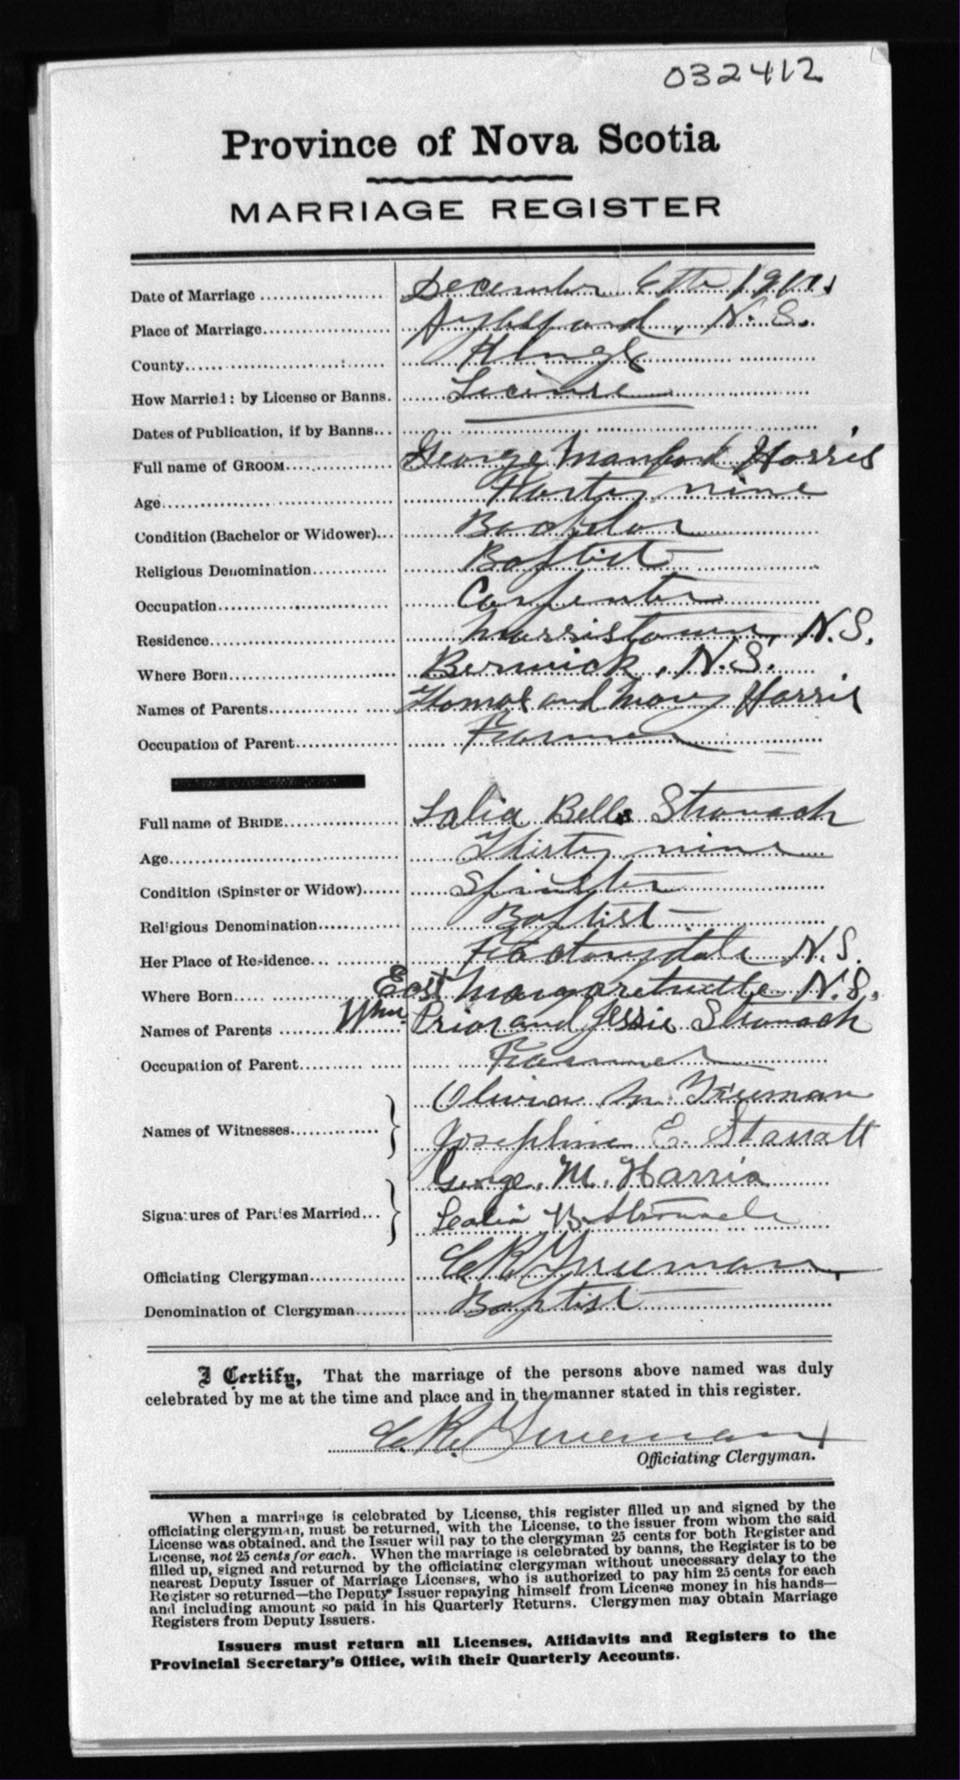 032412
Province of Nova Scotia
MARRIAGE REGISTER
Date of Marriage December 6th
Place of Marriage Aylesford, N.S.
County Kings
How Married: by License or Banns. License
Dates of Publication, if by Banns
Full name of GROOM George Manford Harris
Age Forty nine
Condition (Bachelor or Widower) Bachelor
Religious Denomination Baptist
Occupation Carpenter
Residence Morristown, N.S.
Where Born Berwick, N.S.
Names of Parents Thomas and Mary Harris
Occupation of Parent Farmer
Full name of BRIDE Salia Bell Stronach
Age Thirty nine
Condition (Spinster or Widow) Spinster
Religious Denomination Baptist
Her Place of Residence Factorydale N.S.
Where Born East Margaretville N.S.
Names of Parents Wm. Prior and Jessie Stronach
Occupation of Parent Farmer
Names of Witnesses Olivia M. Freeman
Josephine E. Starratt
Signatures of Parties Married George. M. Harris
B. Stronach
Officiating Clergyman C. R. Freeman
Denomination of Clergyman Baptist
I Certify, That the marriage of the persons above named was duly
celebrated by me at the time and place and in the manner stated in this register.
C. R. Freeman
Officiating Clergyman.
When a marriage is celebrated by License, this register filled up and signed by the
officiating clergyman, must be returned, with the License, to the issuer from whom the said
License was obtained, and the Issuer will pay to the clergyman 25 cents for both Register and
License, not 25 cents for each. When the marriage is celebrated by banns, the Register is to be
filled up, signed and returned by the officiating clergyman without unnecessary delay to the
nearest Deputy Issuer of Marriage Licenses, who is authorized to pay him 25 cents for each
Register so returned—the Deputy Issuer repaying himself from License money in his hands—
and including amount so paid in his Quarterly Returns. Clergymen may obtain Marriage
Registers from Deputy Issuers.
Issuers must return all Licenses, Affidavits and Registers to the
Provincial Secretary's Office, with their Quarterly Accounts.